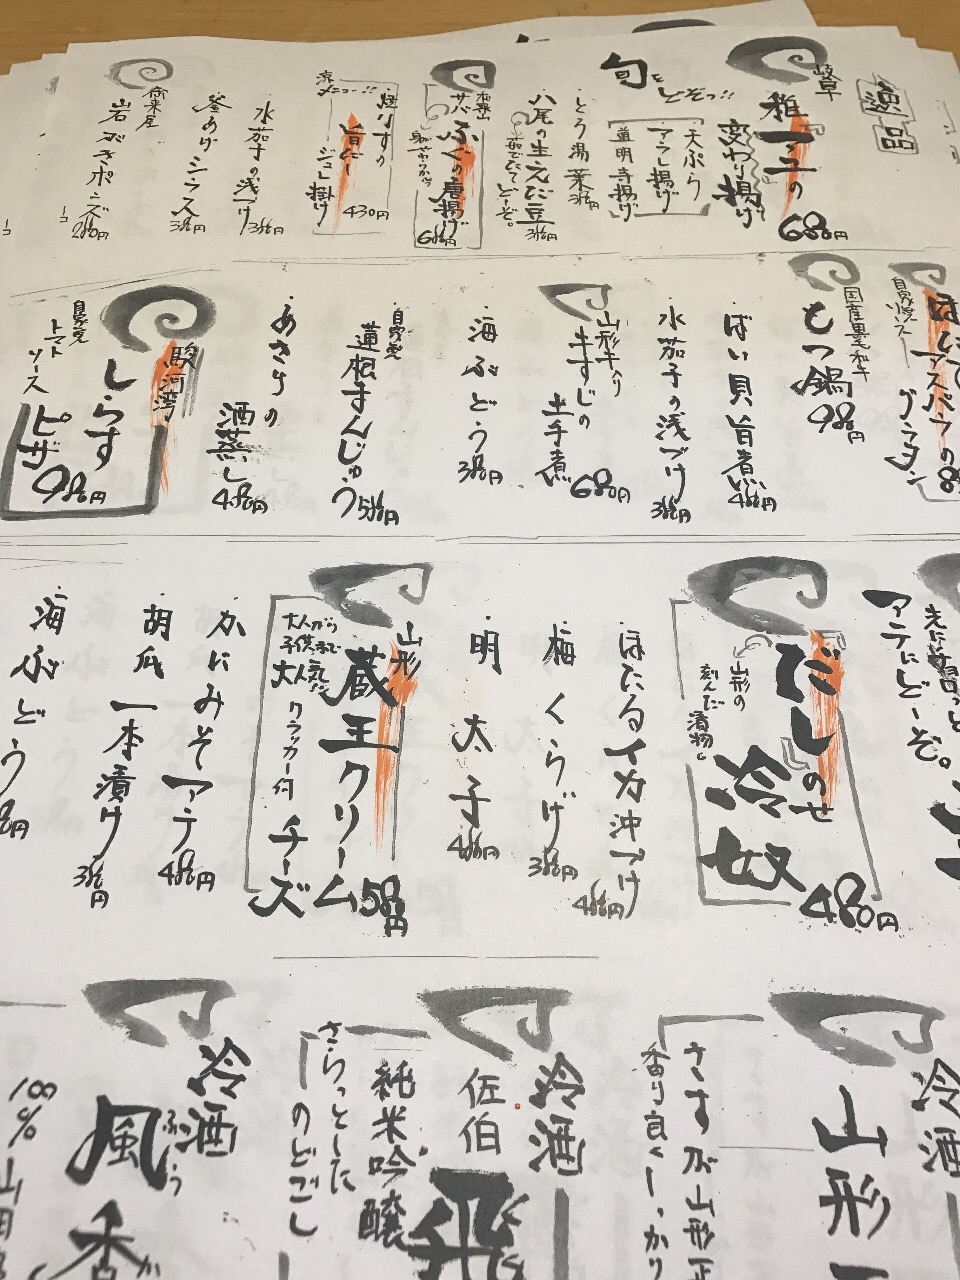 逸品
岐阜
稚アユの
変わり揚げ
680円
天ぷら
アラレ揚げ
道明寺揚げ
旬を
どそっ!!
とろ湯葉
380円
八尾の生えだ豆
380円
茹でたてどーぞ。
和歌山
サバふぐの唐揚げ
680円
焼りすの
旨だし
ジュレ掛け
430円
京メニュー!!
水茄子の浅づけ
380円
釜あげシラス
380円
岩がきポン酢
1コ
280円
ほたてアスパラの
グラタン
自家製ソース
国産黒毛和牛
もつ鍋
980円
ばい貝旨煮
480円
水茄子の浅づけ
380円
山形牛入り
牛すじの
土手煮
680円
海ぶどう
380円
自家製
蓮根まんじゅう
580円
あさりの
酒蒸し
480円
駿河湾
しらす
ピザ
980円
自家製
トマト
ソース
アテにどーぞ。
だしのせ
冷奴
480円
山形の
刻んだ
漬物
ほたるイカ沖づけ
480円
梅くらげ
380円
明太子
480円
山形
蔵王クリーム
チーズ
580円
大人から
子供まで
大人気だ
クラッカー付
かにみそアテ
480円
胡瓜一本漬け
380円
海ぶどう
冷酒
山形
さすが山形正
香り良く しっかり
冷酒
佐伯
飛
純米吟醸
さらっとした
のどごし
冷酒
風香
ふう
か
100%山田